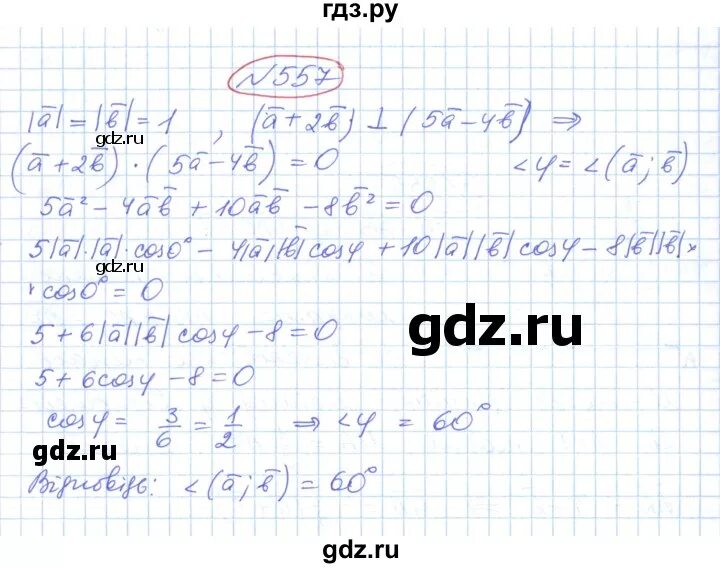 гдз.ру
№557
|a̅| = |b̅| = 1 , (a̅ + 2b̅) ⊥ (5a̅ - 4b̅) ⇒
(a̅ + 2b̅) · (5a̅ - 4b̅) = 0 <φ = <(a̅; b̅)
5a̅² - 4a̅b̅ + 10a̅b̅ - 8b̅² = 0
5|a̅|·|a̅|·cos0° - 4|a̅||b̅|cosφ + 10|a̅||b̅|cosφ - 8|b̅||b̅|×
× cos0° = 0
5 + 6|a̅||b̅|cosφ - 8 = 0
gdz.ru
5 + 6cosφ - 8 = 0
cosφ = 3/6 = 1/2 ⇒ <φ = 60°
gdz.ru
Відповідь: <(a̅; b̅) = 60°
gdz.ru